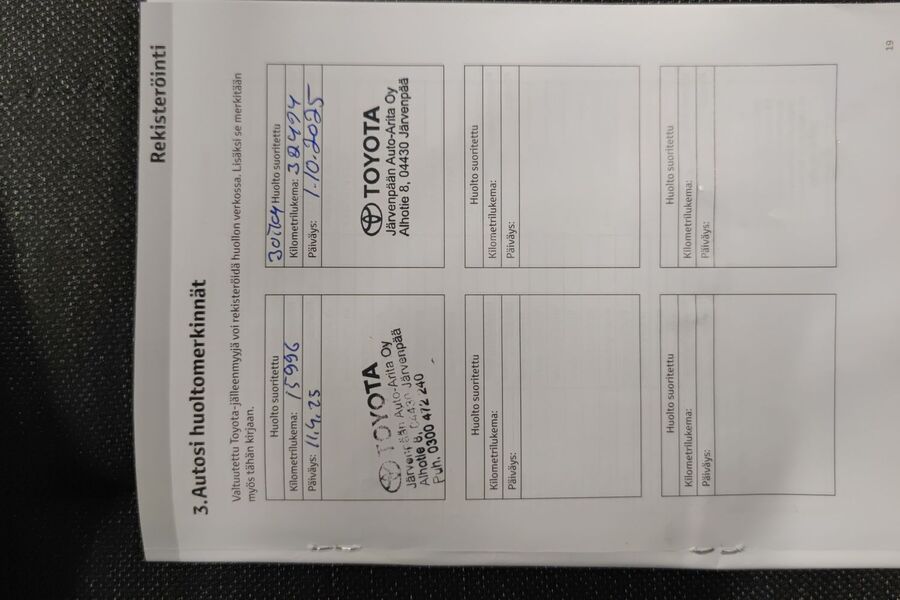 Rekisteröinti
3. Autosi huoltomerkinnät
Valtuutettu Toyota-jälleenmyyjä voi rekisteröidä huollon verkossa. Lisäksi se merkitään
myös tähän kirjaan.
Huolto suoritettu
Kilometrilukema: 15996
Päiväys: 11.4.25
TOYOTA
Järvenpään Auto-Arita Oy
Alhotie 8, 04430 Järvenpää
Puh. 0300 472 240
Huolto suoritettu
Kilometrilukema: 32494
Päiväys: 1.10.2025
TOYOTA
Järvenpään Auto-Arita Oy
Alhotie 8, 04430 Järvenpää
Huolto suoritettu
Kilometrilukema:
Päiväys:
Huolto suoritettu
Kilometrilukema:
Päiväys:
Huolto suoritettu
Kilometrilukema:
Päiväys:
Huolto suoritettu
Kilometrilukema:
Päiväys:
19